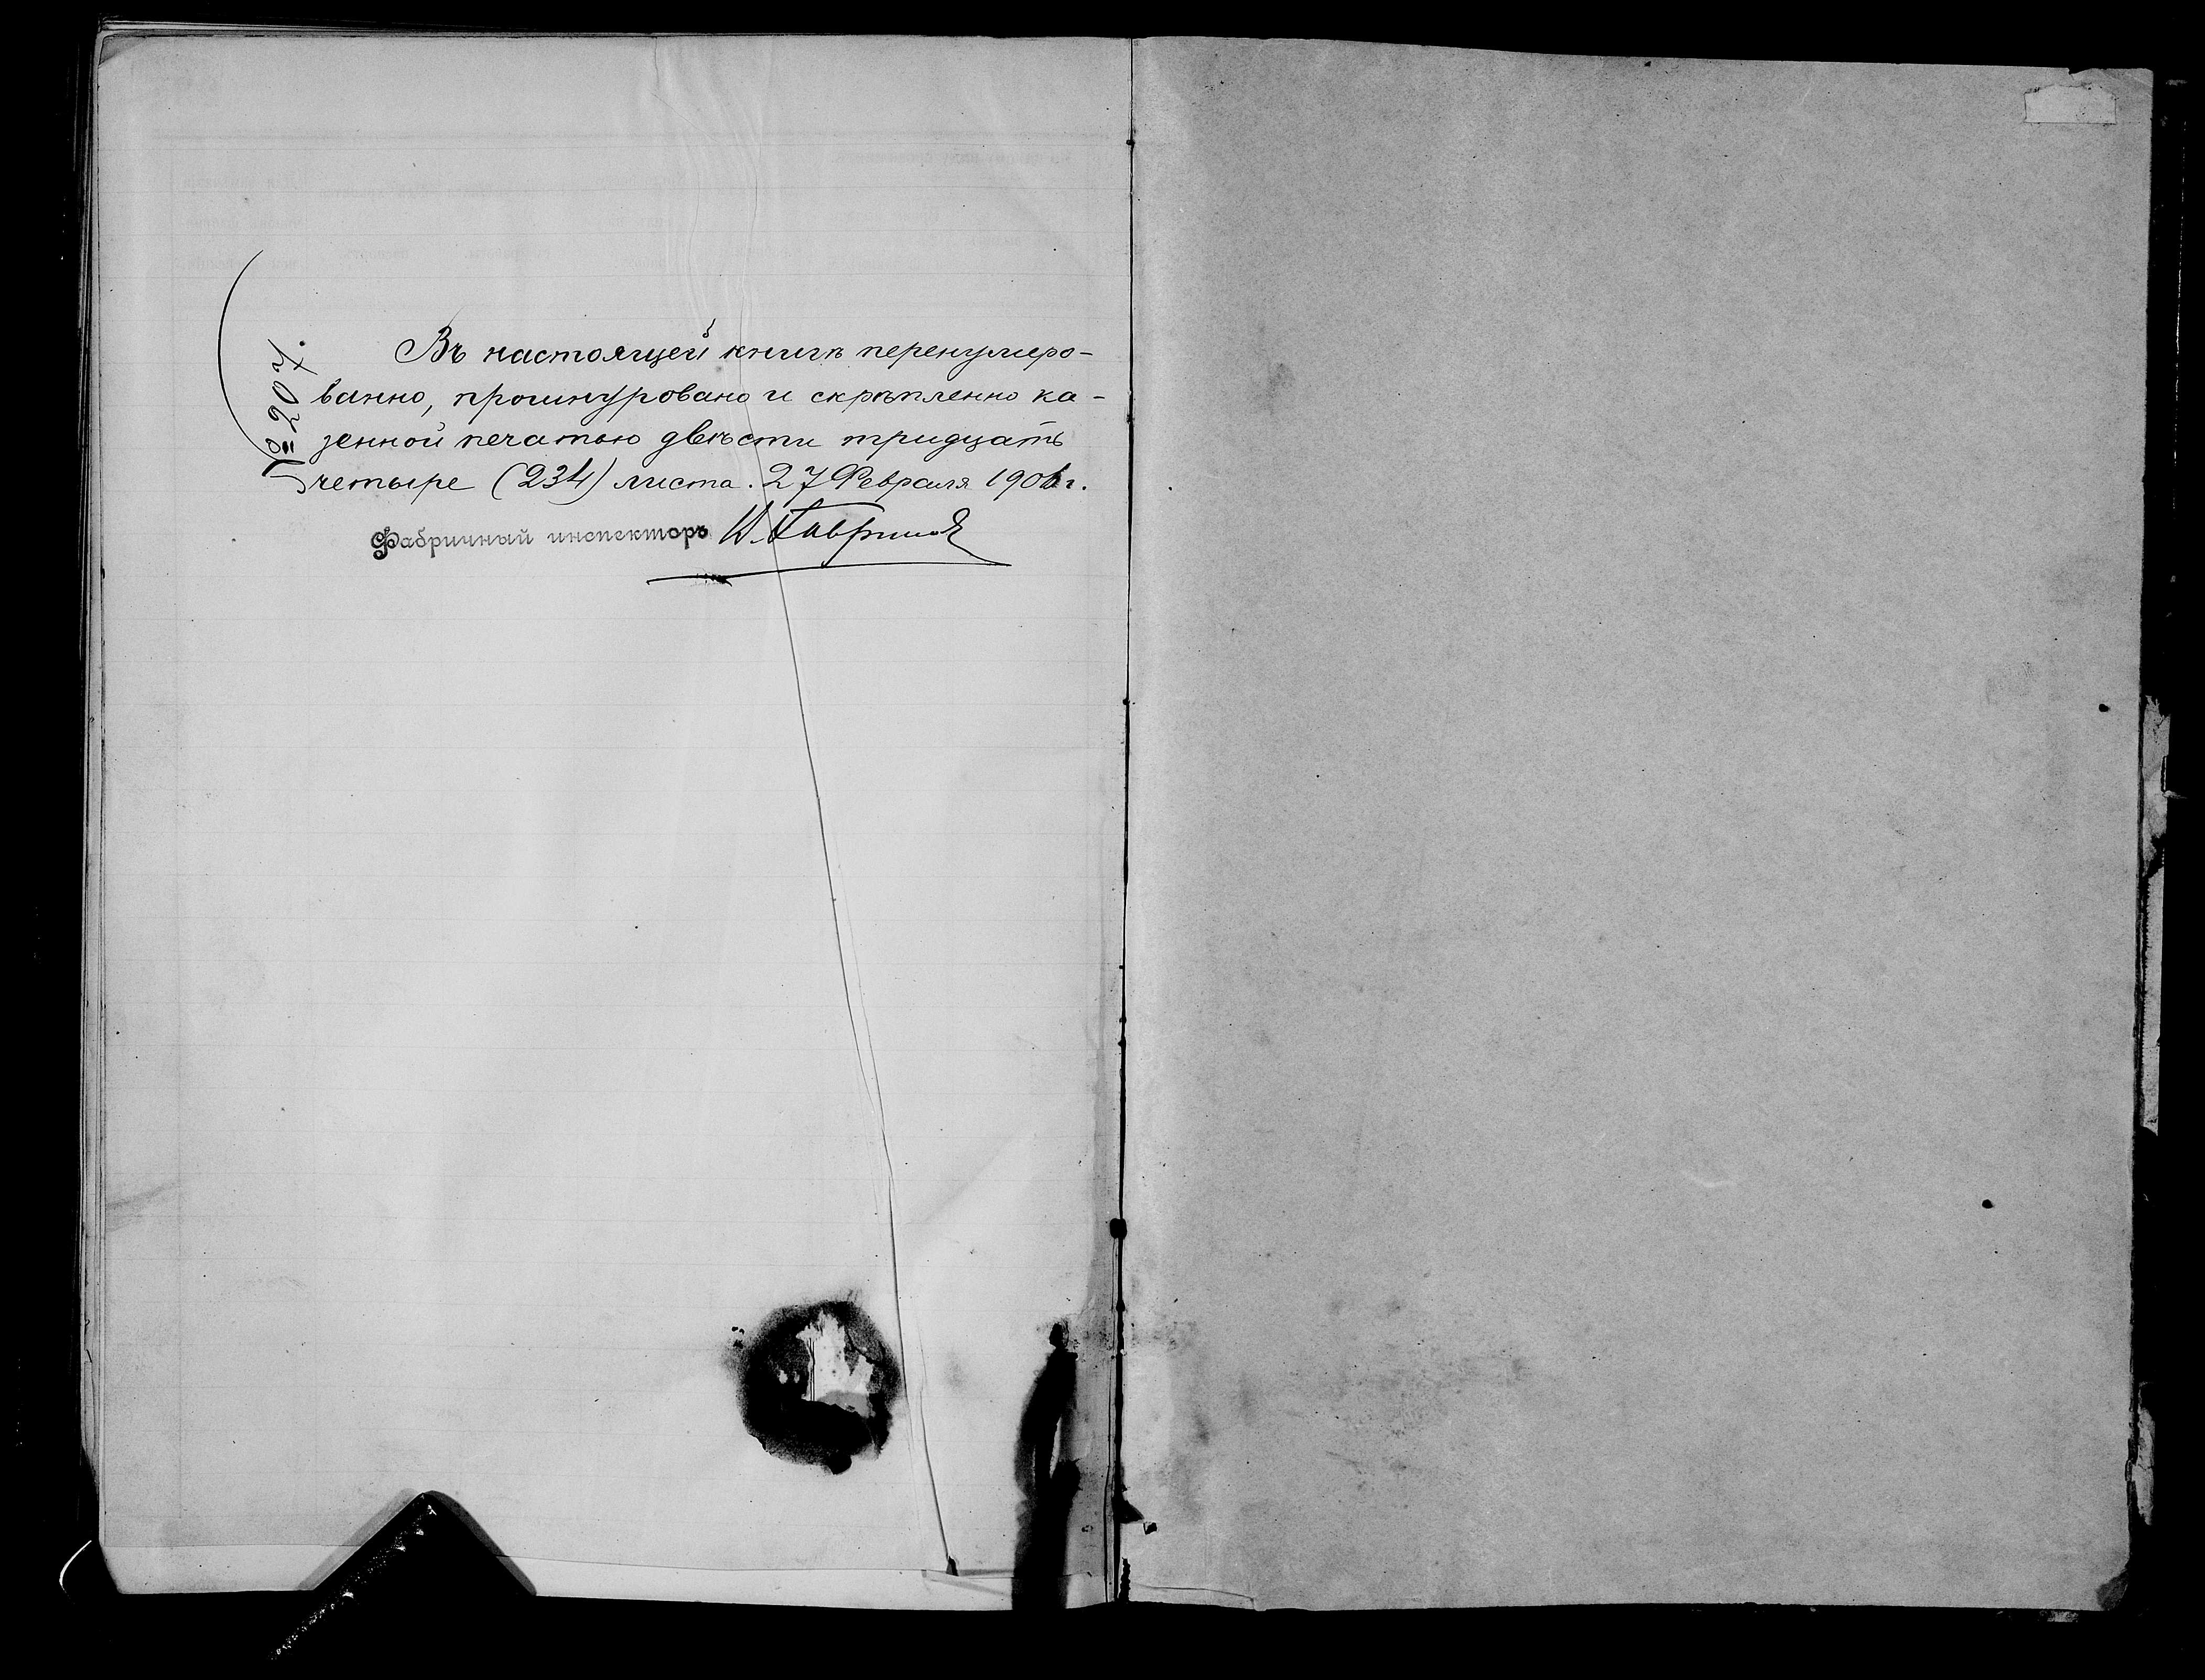 № 207.
Въ настоящей книгѣ перенумеро-
ванно, прошнуровано и скрѣпленно ка-
зенной печатью двѣсти тридцать
четыре (234) листа. 27 Февраля 1906 г.
Фабричный инспекторъ